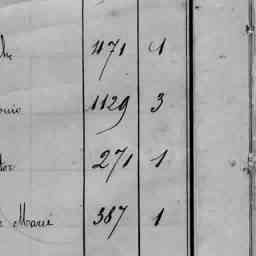 1171 1
onio 1129 3
tor 271 1
Marie 387 1